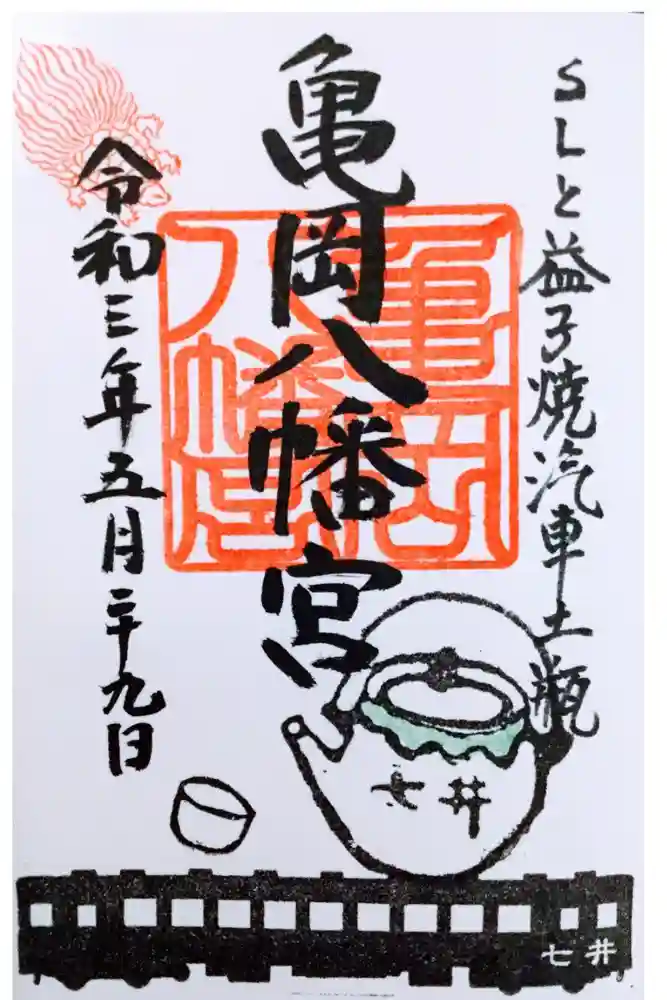 SLと益子焼汽車土瓶
亀岡八幡宮
亀岡八幡宮
令和三年五月二十九日
七井
七井